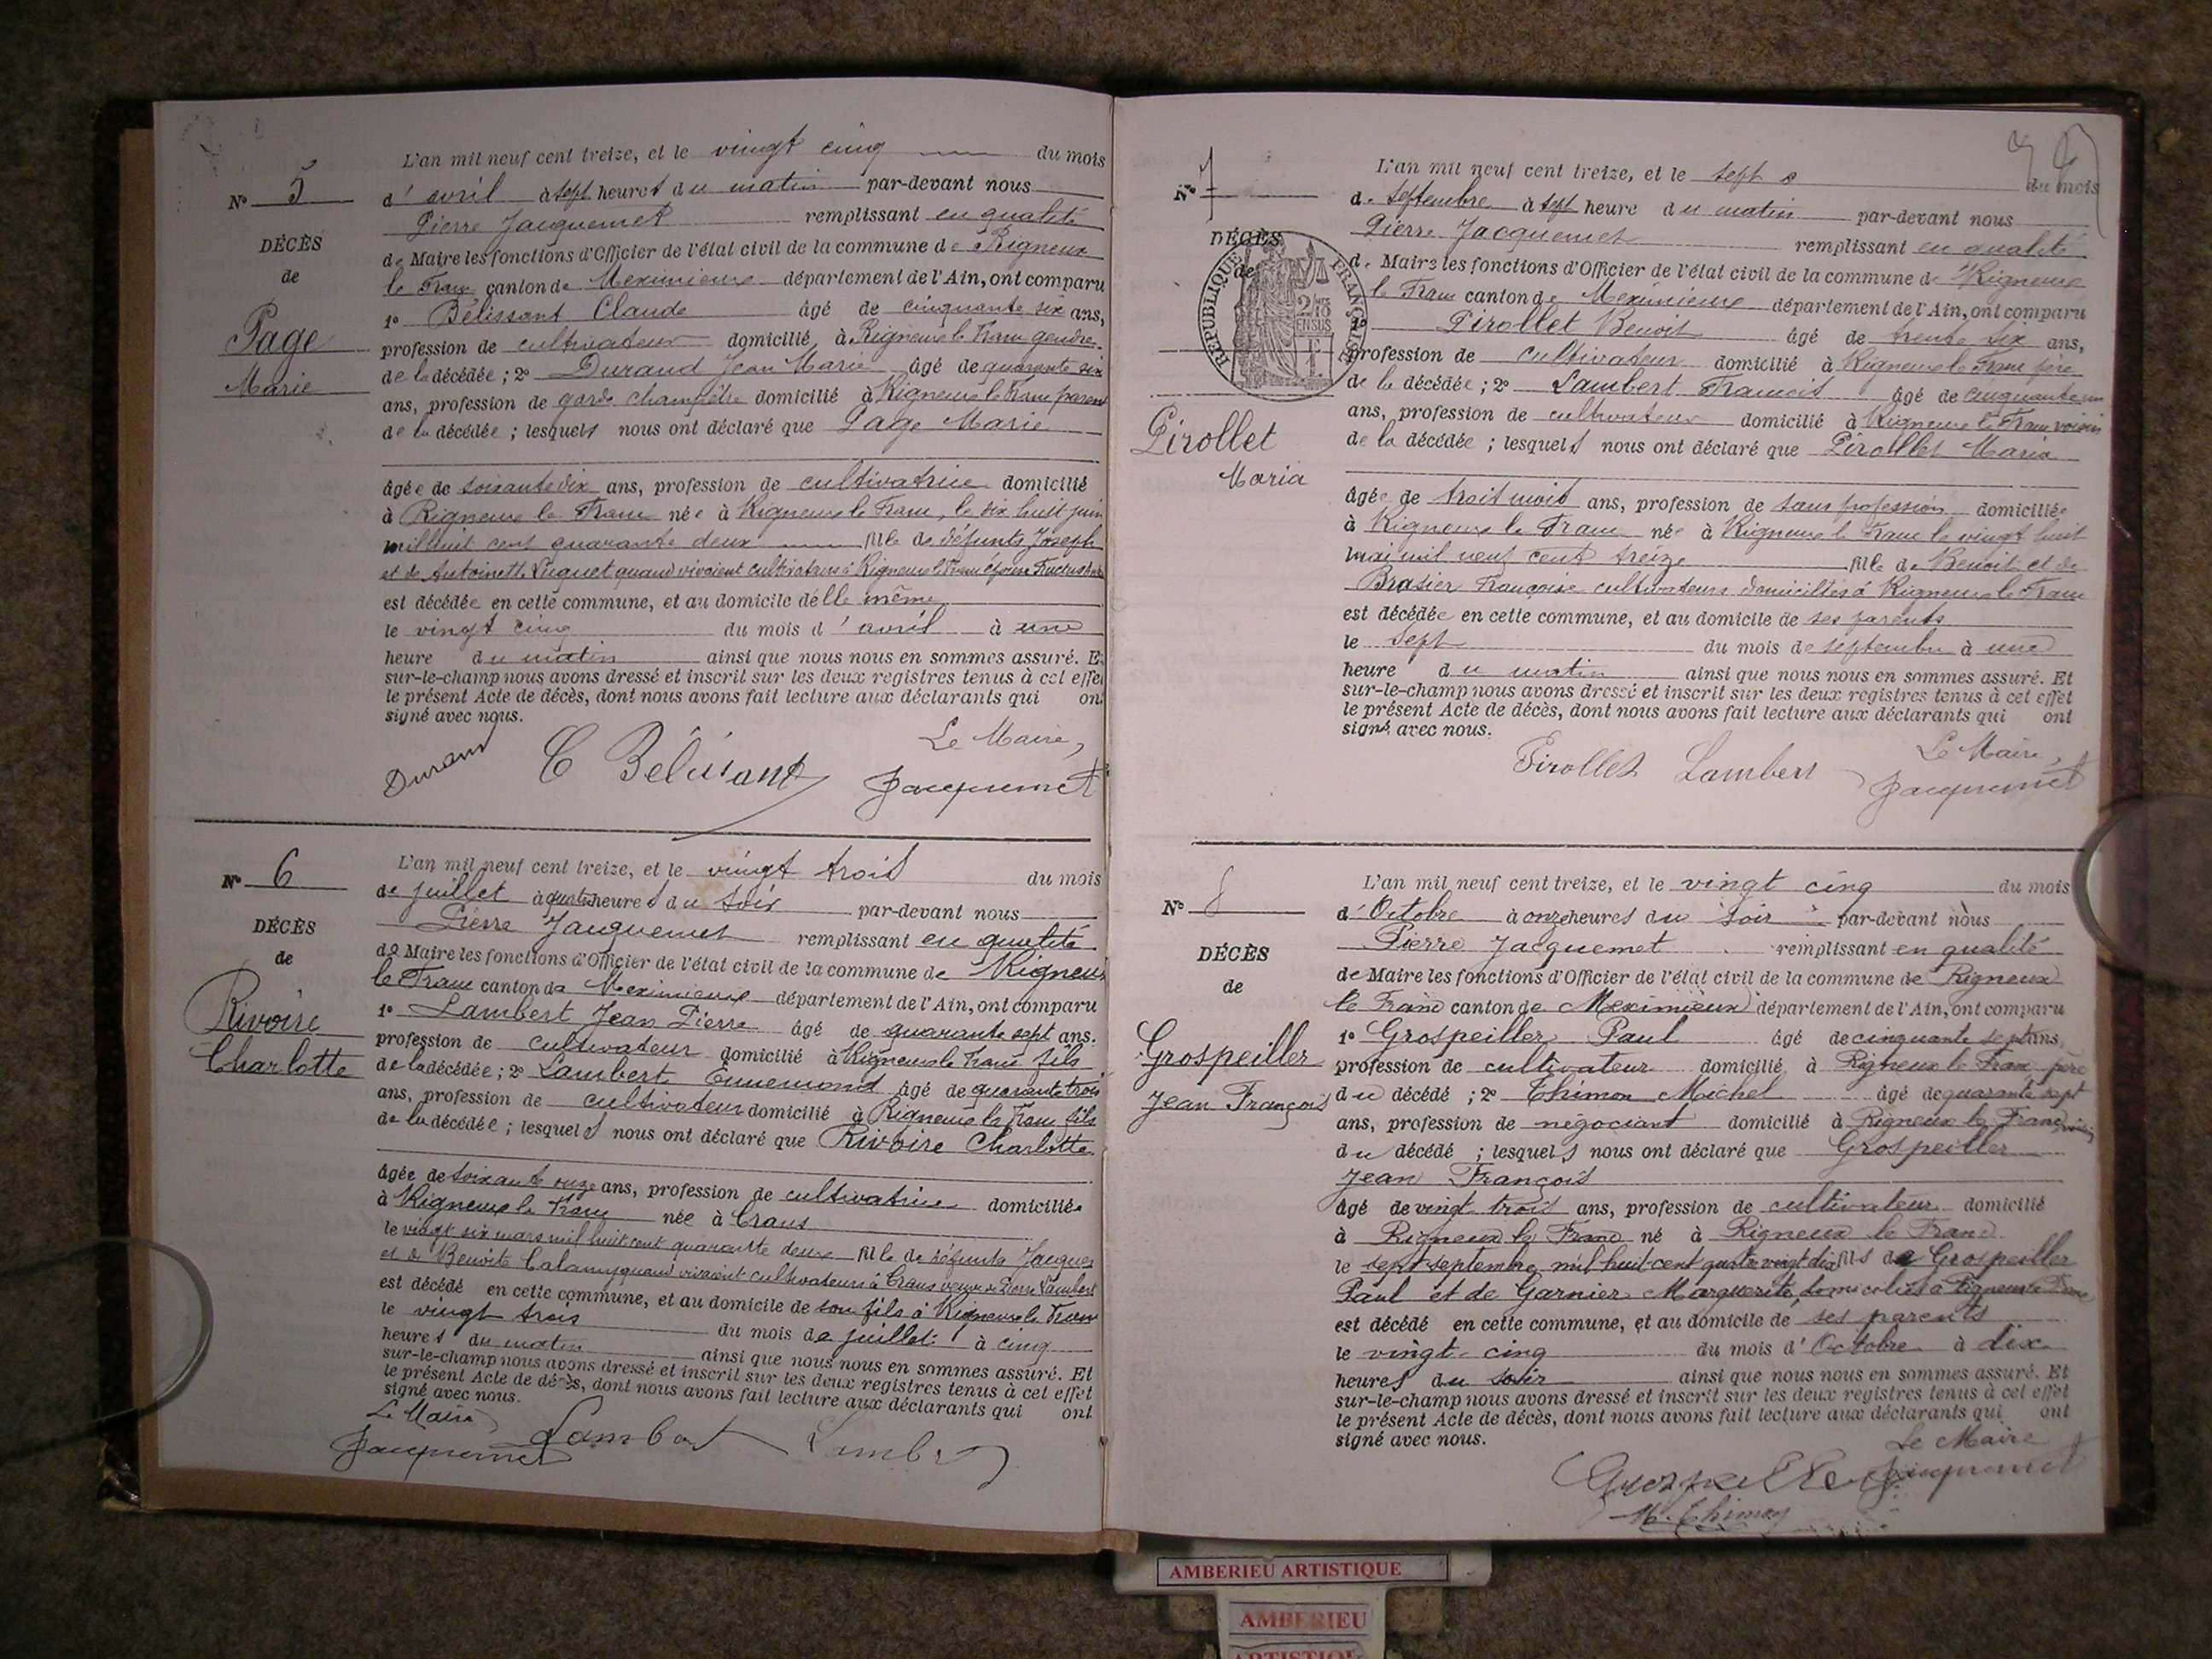 L'an mil neuf cent treize, et le vingt cinq du mois
N° 5
d'avril à sept heures du matin par-devant nous
Pierre Jacquemet remplissant en qualité
DÉCÈS
de Maire les fonctions d'Officier de l'état civil de la commune de Rigneux
de
le Franc canton de Meximieux département de l'Ain, ont comparu
1° Bélissant Claude âgé de cinquante six ans,
Page
profession de cultivateur domicilié à Rigneux le Franc gendre
Marie
de la décédée ; 2° Durand Jean Marie âgé de quarante six
ans, profession de garde champêtre domicilié à Rigneux le Franc parent
de la décédée ; lesquels nous ont déclaré que Page Marie
âgée de soixante dix ans, profession de cultivatrice domicilié
à Rigneux le Franc née à Rigneux le Franc, le juin
mil huit cent quarante deux fille de défunts Joseph
et de Antoinette quand vivaient cultivateurs à Rigneux le Franc
est décédée en cette commune, et au domicile d'elle même
le vingt cinq du mois d'avril à une
heure du matin ainsi que nous nous en sommes assuré. Et
sur-le-champ nous avons dressé et inscrit sur les deux registres tenus à cet effet
le présent Acte de décès, dont nous avons fait lecture aux déclarants qui ont
signé avec nous.
Le Maire,
Durand C Bélissant Jacquemet
L'an mil neuf cent treize, et le vingt trois du mois
N° 6
de juillet à quatre heures du soir par-devant nous
Pierre Jacquemet remplissant en qualité
DÉCÈS
de Maire les fonctions d'Officier de l'état civil de la commune de Rigneux
de
le Franc canton de Meximieux département de l'Ain, ont comparu
1° Lambert Jean Pierre âgé de quarante sept ans.
Rivoire
profession de cultivateur domicilié à Rigneux le Franc fils
Charlotte
de la décédée ; 2° Lambert Ennemond âgé de quarante trois
ans, profession de cultivateur domicilié à Rigneux le Franc fils
de la décédée ; lesquels nous ont déclaré que Rivoire Charlotte
âgée de soixante onze ans, profession de cultivatrice domiciliée
à Rigneux le Franc née à Crans
le vingt six mars mil huit cent quarante deux fille de défunts Jacques
et de Benoite quand vivaient cultivateurs à Crans veuve de Pierre Lambert
est décédé en cette commune, et au domicile de son fils à Rigneux le Franc
le vingt trois du mois de juillet à cinq
heures du matin ainsi que nous nous en sommes assuré. Et
sur-le-champ nous avons dressé et inscrit sur les deux registres tenus à cet effet
le présent Acte de décès, dont nous avons fait lecture aux déclarants qui ont
signé avec nous.
Le Maire
Jacquemet Lambert Lambert
L'an mil neuf cent treize, et le sept du mois
N° 7
de septembre à sept heure du matin par-devant nous
Pierre Jacquemet remplissant en qualité
DÉCÈS
de Maire les fonctions d'Officier de l'état civil de la commune de Rigneux
de
RÉPUBLIQUE FRANÇAISE
le Franc canton de Meximieux département de l'Ain, ont comparu
1° Pirollet Benoit âgé de trente six ans,
profession de cultivateur domicilié à Rigneux le Franc père
de la décédée ; 2° Lambert François âgé de cinquante un
ans, profession de cultivateur domicilié à Rigneux le Franc voisin
Pirollet
de la décédée ; lesquels nous ont déclaré que Pirollet Maria
Maria
âgée de trois mois ans, profession de sans profession domiciliée
à Rigneux le Franc née à Rigneux le Franc le vingt huit
mai mil neuf cent treize fille de Benoit et de
Brasier Françoise cultivateurs domiciliés à Rigneux le Franc
est décédée en cette commune, et au domicile de ses parents
le sept du mois de septembre à une
heure du matin ainsi que nous nous en sommes assuré. Et
sur-le-champ nous avons dressé et inscrit sur les deux registres tenus à cet effet
le présent Acte de décès, dont nous avons fait lecture aux déclarants qui ont
signé avec nous.
Le Maire,
Pirollet Lambert Jacquemet
L'an mil neuf cent treize, et le vingt cinq du mois
N° 8
d'Octobre à onze heures du soir par-devant nous
Pierre Jacquemet remplissant en qualité
DÉCÈS
de Maire les fonctions d'Officier de l'état civil de la commune de Rigneux
de
le Franc canton de Meximieux département de l'Ain, ont comparu
1° Grospeiller Paul âgé de cinquante sept ans,
Grospeiller
profession de cultivateur domicilié à Rigneux le Franc père
Jean François
du décédé ; 2° Thimon Michel âgé de quarante sept
ans, profession de négociant domicilié à Rigneux le Franc voisin
du décédé ; lesquels nous ont déclaré que Grospeiller
Jean François
âgé de vingt trois ans, profession de cultivateur domicilié
à Rigneux le Franc né à Rigneux le Franc
le sept septembre mil huit cent quatre vingt dix fils de Grospeiller
Paul et de Garnier Marguerite domiciliés à Rigneux le Franc
est décédé en cette commune, et au domicile de ses parents
le vingt-cinq du mois d'Octobre à dix
heures du soir ainsi que nous nous en sommes assuré. Et
sur-le-champ nous avons dressé et inscrit sur les deux registres tenus à cet effet
le présent Acte de décès, dont nous avons fait lecture aux déclarants qui ont
signé avec nous.
Le Maire
Jacquemet
M. Thimon
AMBERIEU ARTISTIQUE
AMBERIEU
ARTISTIQUE